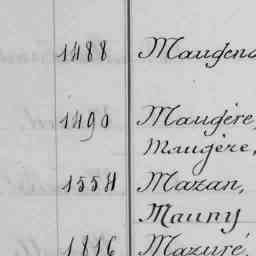 1488 Maugend
1490 Maugère,
Maugère,
1554 Mazan,
Mauny
1816 Mazuré,